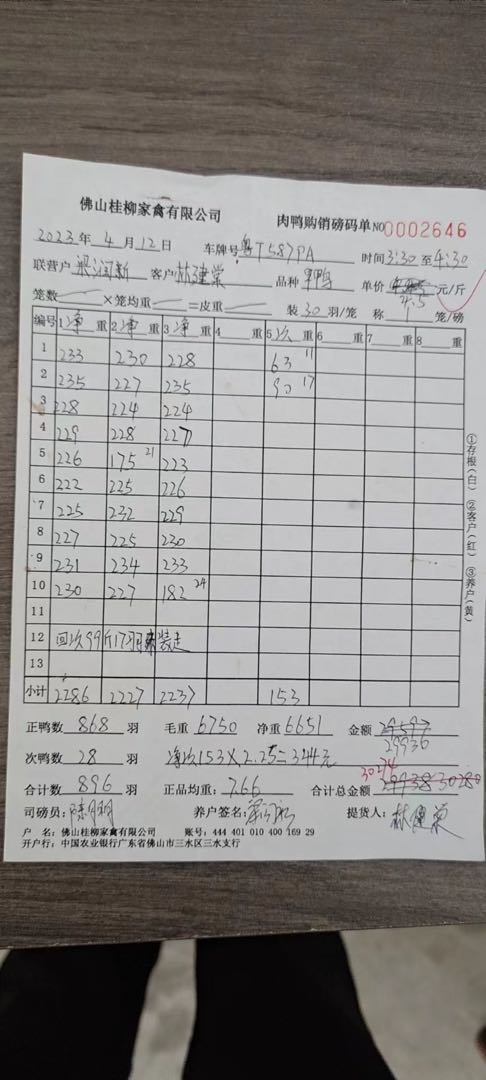 佛山桂柳家禽有限公司 肉鸭购销磅码单 NO 0002646
2023年4月12日 车牌号 粤T587PA 时间3:30至4:30
联营户 客户 林建棠 品种 单价 4.5 元/斤
笼数 × 笼均重 = 皮重 装30羽/笼 称 笼/磅
编号 1净重 2净重 3净重 4 重 5次重 6 重 7 重 8 重
1 233 230 228 63 11
2 235 227 235 90 17
3 228 224 224
4 229 228 227
5 226 175 21 223
6 222 225 226
7 225 232 229
8 227 225 230
9 231 234 233
10 230 227 182 24
11
12 回次99斤17羽 装走
13
小计 2286 2227 2237 153
正鸭数 868 羽 毛重 6750 净重 6651 金额 29597
29930
次鸭数 28 羽 净次153×2.25=344元
30274
合计数 896 羽 正品均重:7.66 合计总金额 29938 30280
司磅员: 养户签名: 提货人:林建棠
户 名:佛山桂柳家禽有限公司 账号:444 401 010 400 169 29
开户行:中国农业银行广东省佛山市三水区三水支行
①存根(白) ②客户(红) ③养户(黄)